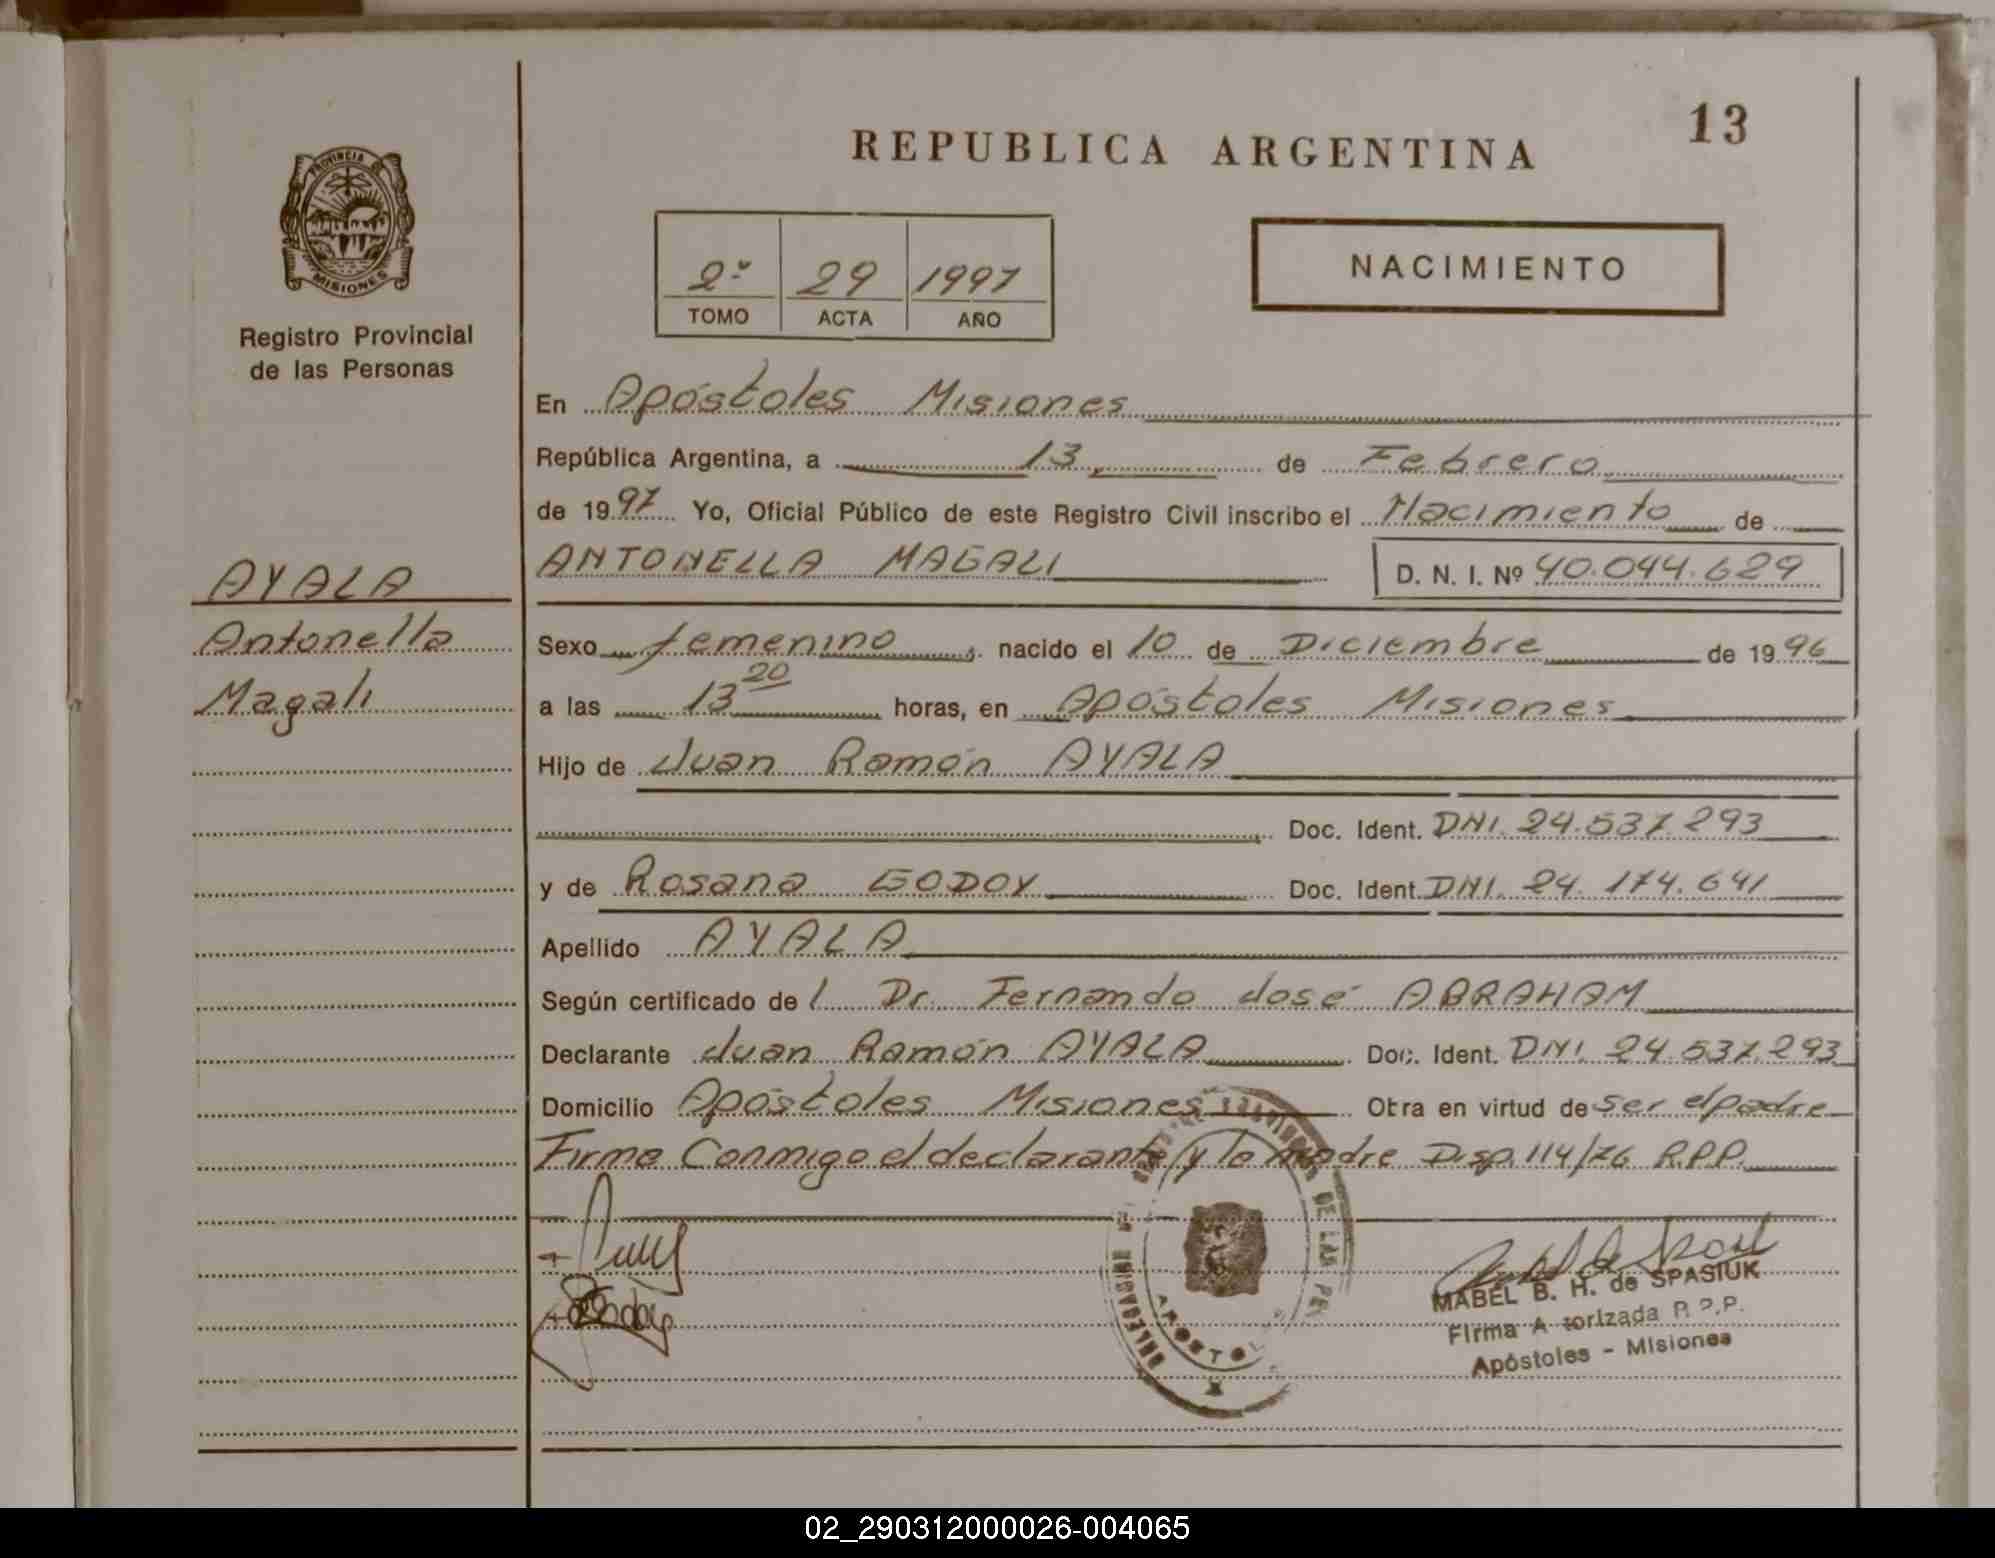 13
REPUBLICA ARGENTINA
PROVINCIA
MISIONES
Registro Provincial
de las Personas
2º 29 1997
TOMO ACTA AÑO
NACIMIENTO
En Apóstoles Misiones
República Argentina, a 13 de Febrero
de 1997 Yo, Oficial Público de este Registro Civil inscribo el Nacimiento de
ANTONELLA MAGALI D. N. I. Nº 40.044.629
AYALA
Antonella
Magali
Sexo femenino, nacido el 10 de Diciembre de 1996
a las 13 20 horas, en Apóstoles Misiones
Hijo de Juan Ramón AYALA
Doc. Ident. DNI. 24.537.293
y de Rosana GODOY Doc. Ident. DNI. 24.174.641
Apellido AYALA
Según certificado del Dr. Fernando José ABRAHAM
Declarante Juan Ramón AYALA Doc. Ident. DNI. 24.537.293
Domicilio Apóstoles Misiones Obra en virtud de ser el padre
Firma Conmigo el declarante y la madre Disp. 114/76 R.P.P.
MABEL B. H. de SPASIUK
Firma A torizada R.P.P.
Apóstoles - Misiones
02_290312000026-004065